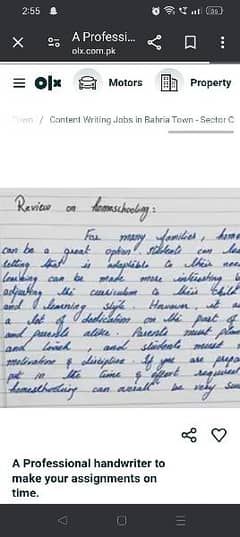 2:55
A Professi...
olx.com.pk
olx Motors Property
/ Content Writing Jobs in Bahria Town - Sector C
Review on homeschooling:
For many families, home
can be a great option. Students can lea
setting that is adaptable to their nee
learning can be made more interesting b
adjusting the curriculum their
and learning style. However, it
a lot of dedication on the part of
and parents alike. Parents must plan
and , and students must
motivation & discipline. If you are prepa
put in the time & effort required
homeschooling can overall be very suc
A Professional handwriter to
make your assignments on
time.